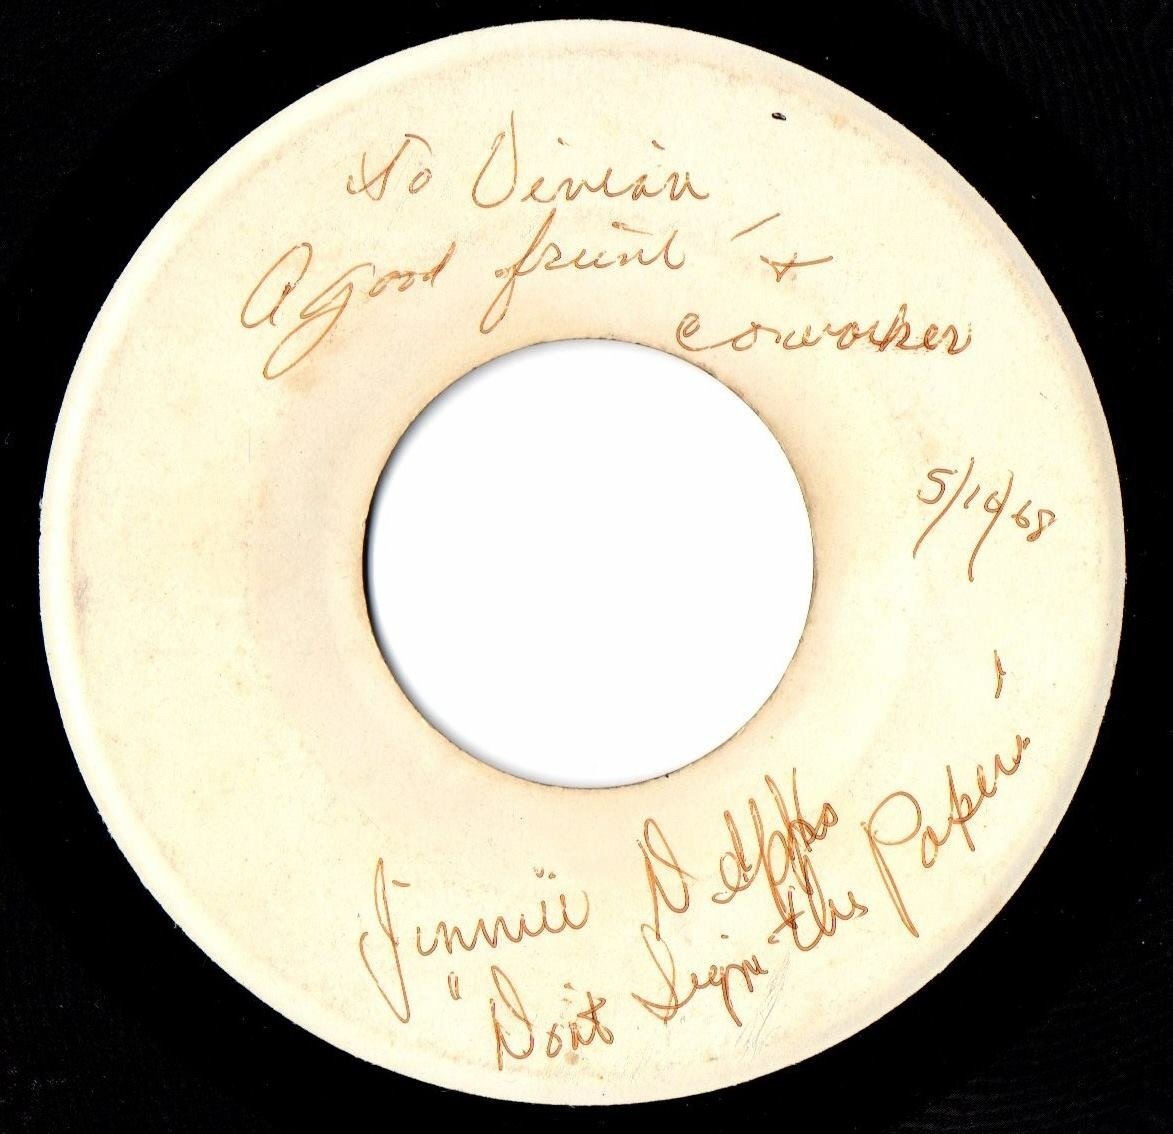 To Vivian
A good friend &
coworker
5/10/68
Jimmie Delphs
"Dont Sign the Papers"